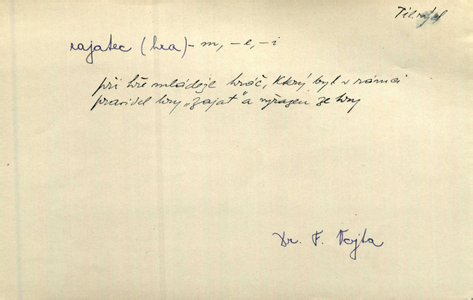 zajatec (hra) - m, -e, -i
při hře mládeže hráč, který byl v rámci
pravidel hry „zajat“ a vyřazen ze hry
Dr. F. Vojta